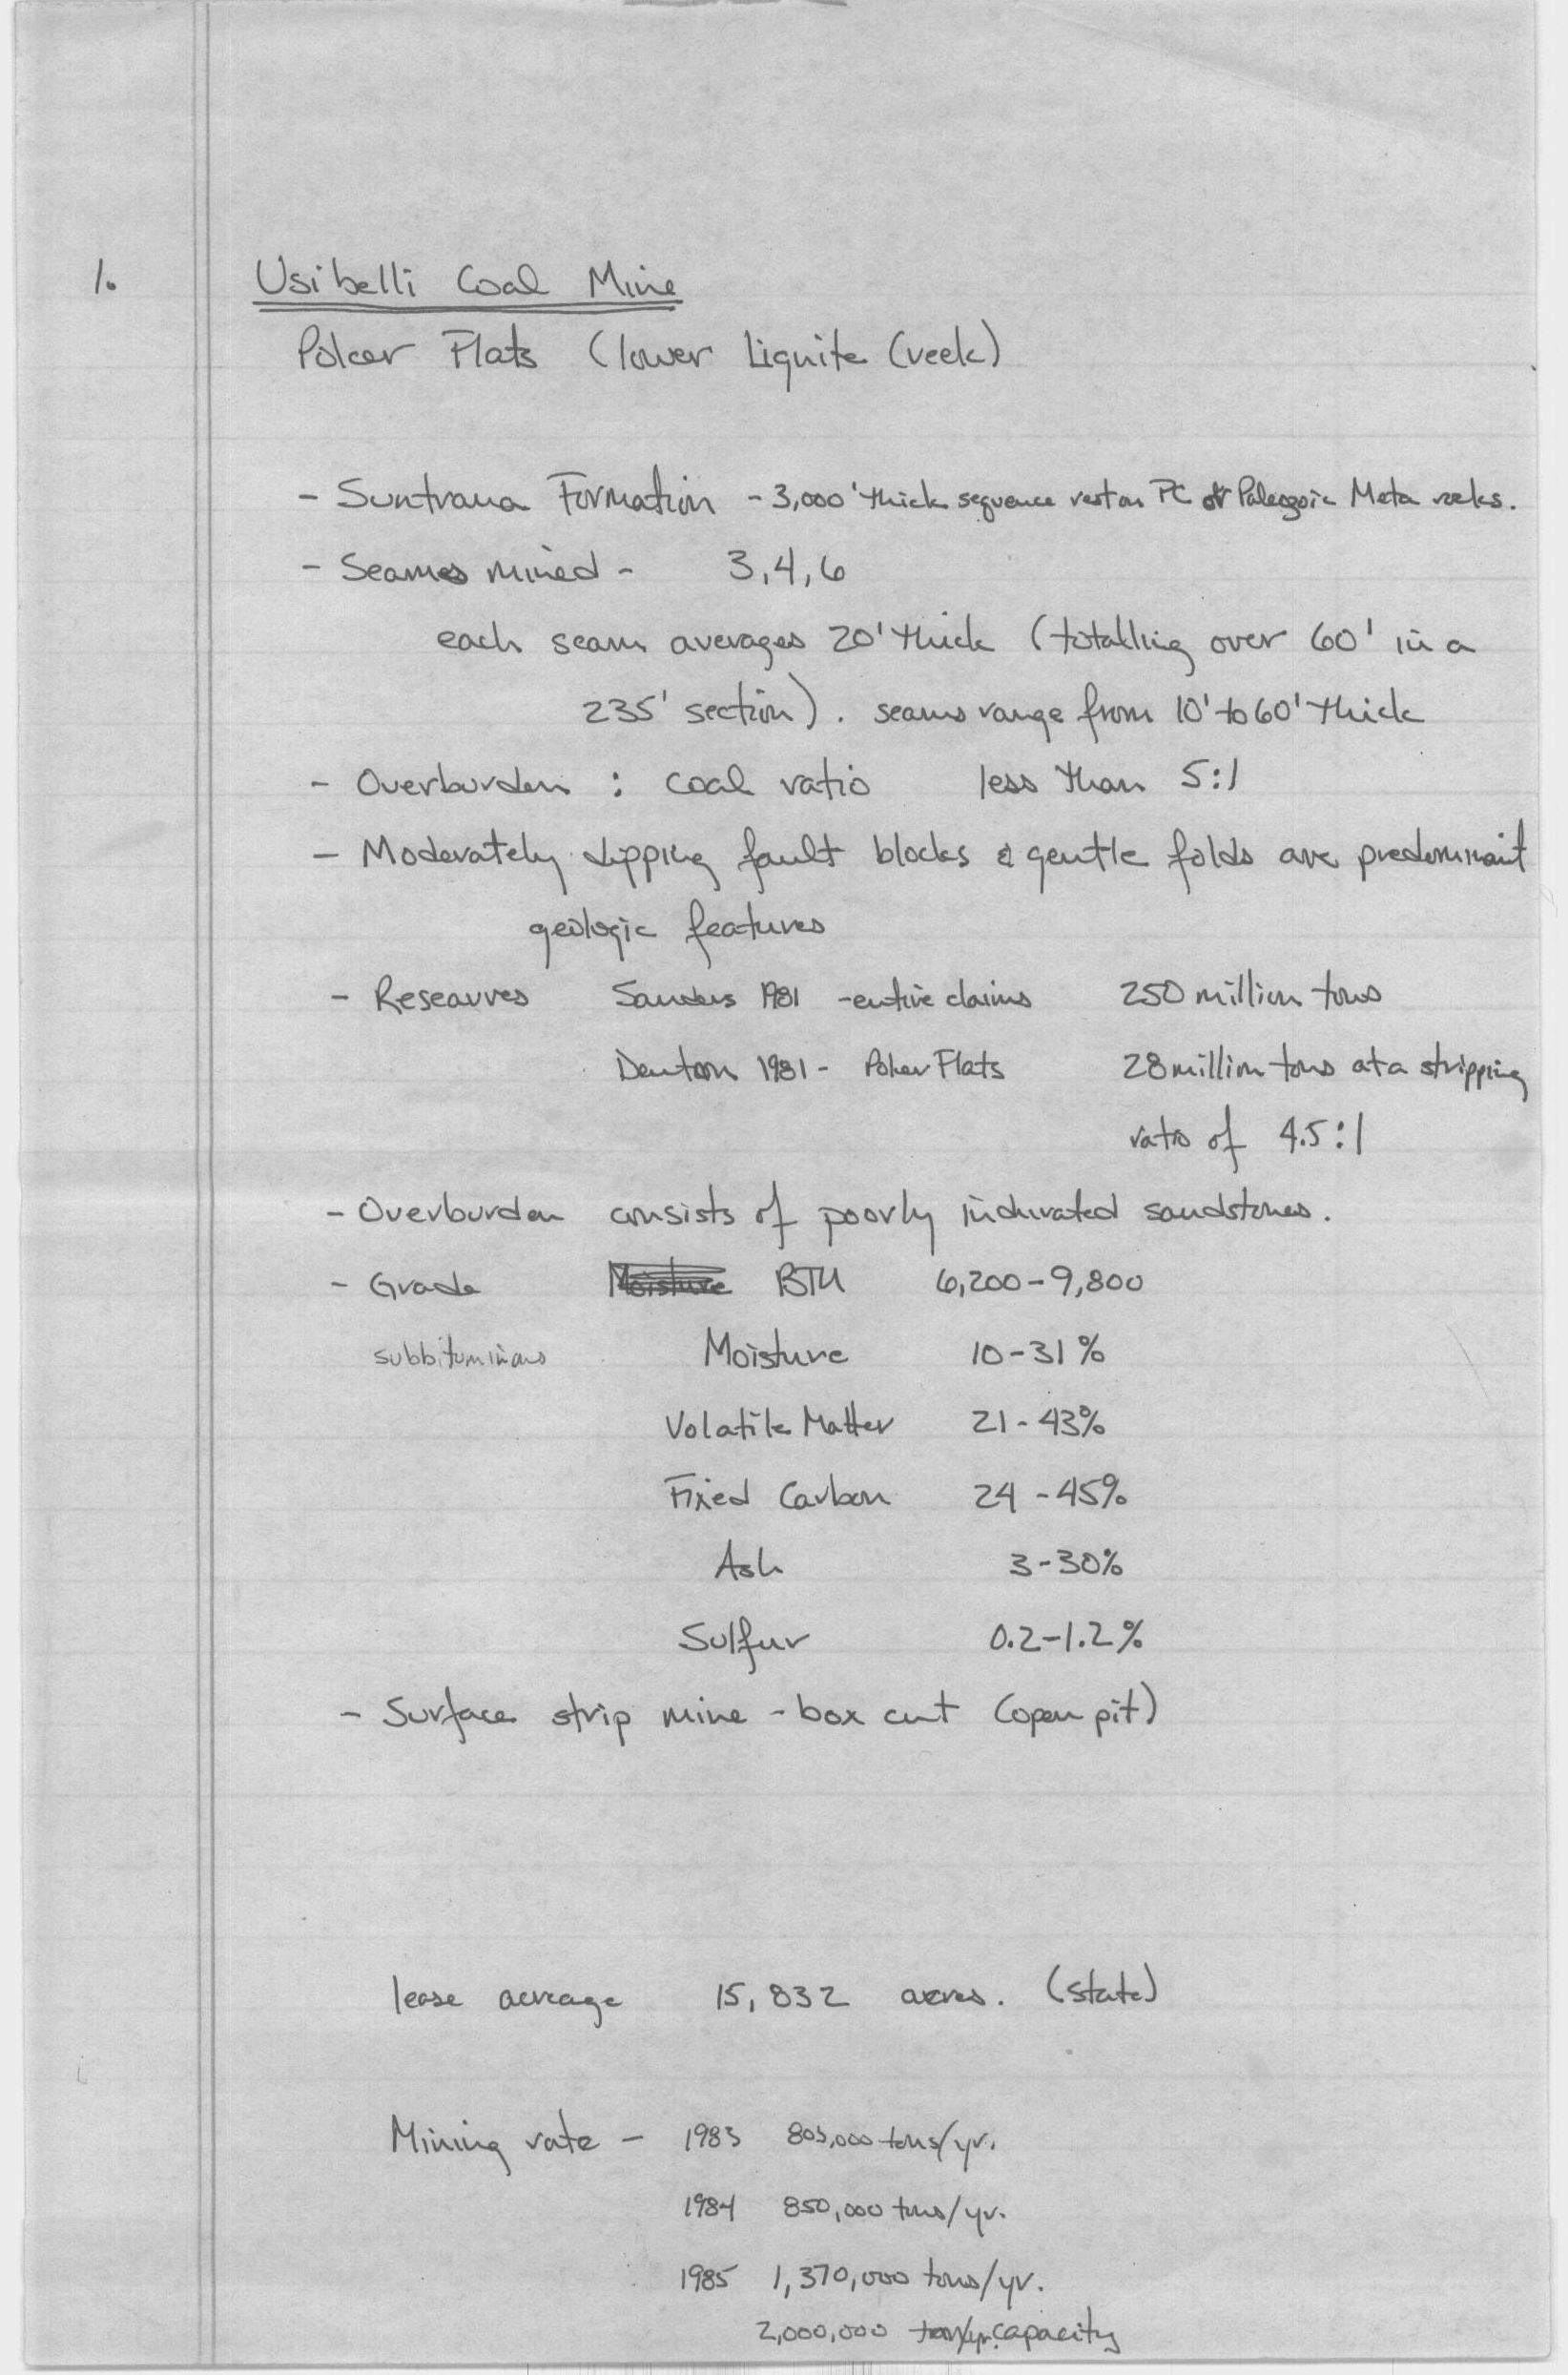 1. Usibelli Coal Mine
Poker Flats (lower Lignite Creek)
- Suntrana Formation - 3,000' thick sequence rest on PC or Paleozoic Meta rocks.
- Seams mined - 3,4,6
each seam averages 20' thick (totalling over 60' in a
235' section). seams range from 10' to 60' thick
- Overburden : coal ratio less than 5:1
- Moderately dipping fault blocks & gentle folds are predominant
geologic features
- Reseauves Sanders 1981 - entire claims 250 million tons
Denton 1981 - Poker Flats 28 million tons at a stripping
ratio of 4.5:1
- Overburden consists of poorly indurated sandstones.
- Grade Moisture BTU 6,200-9,800
subbituminous Moisture 10-31%
Volatile Matter 21-43%
Fixed Carbon 24-45%
Ash 3-30%
Sulfur 0.2-1.2%
- Surface strip mine - box cut (open pit)
lease acreage 15,832 acres. (state)
Mining rate - 1983 803,000 tons/yr.
1984 850,000 tons/yr.
1985 1,370,000 tons/yr.
2,000,000 ton/yr. capacity